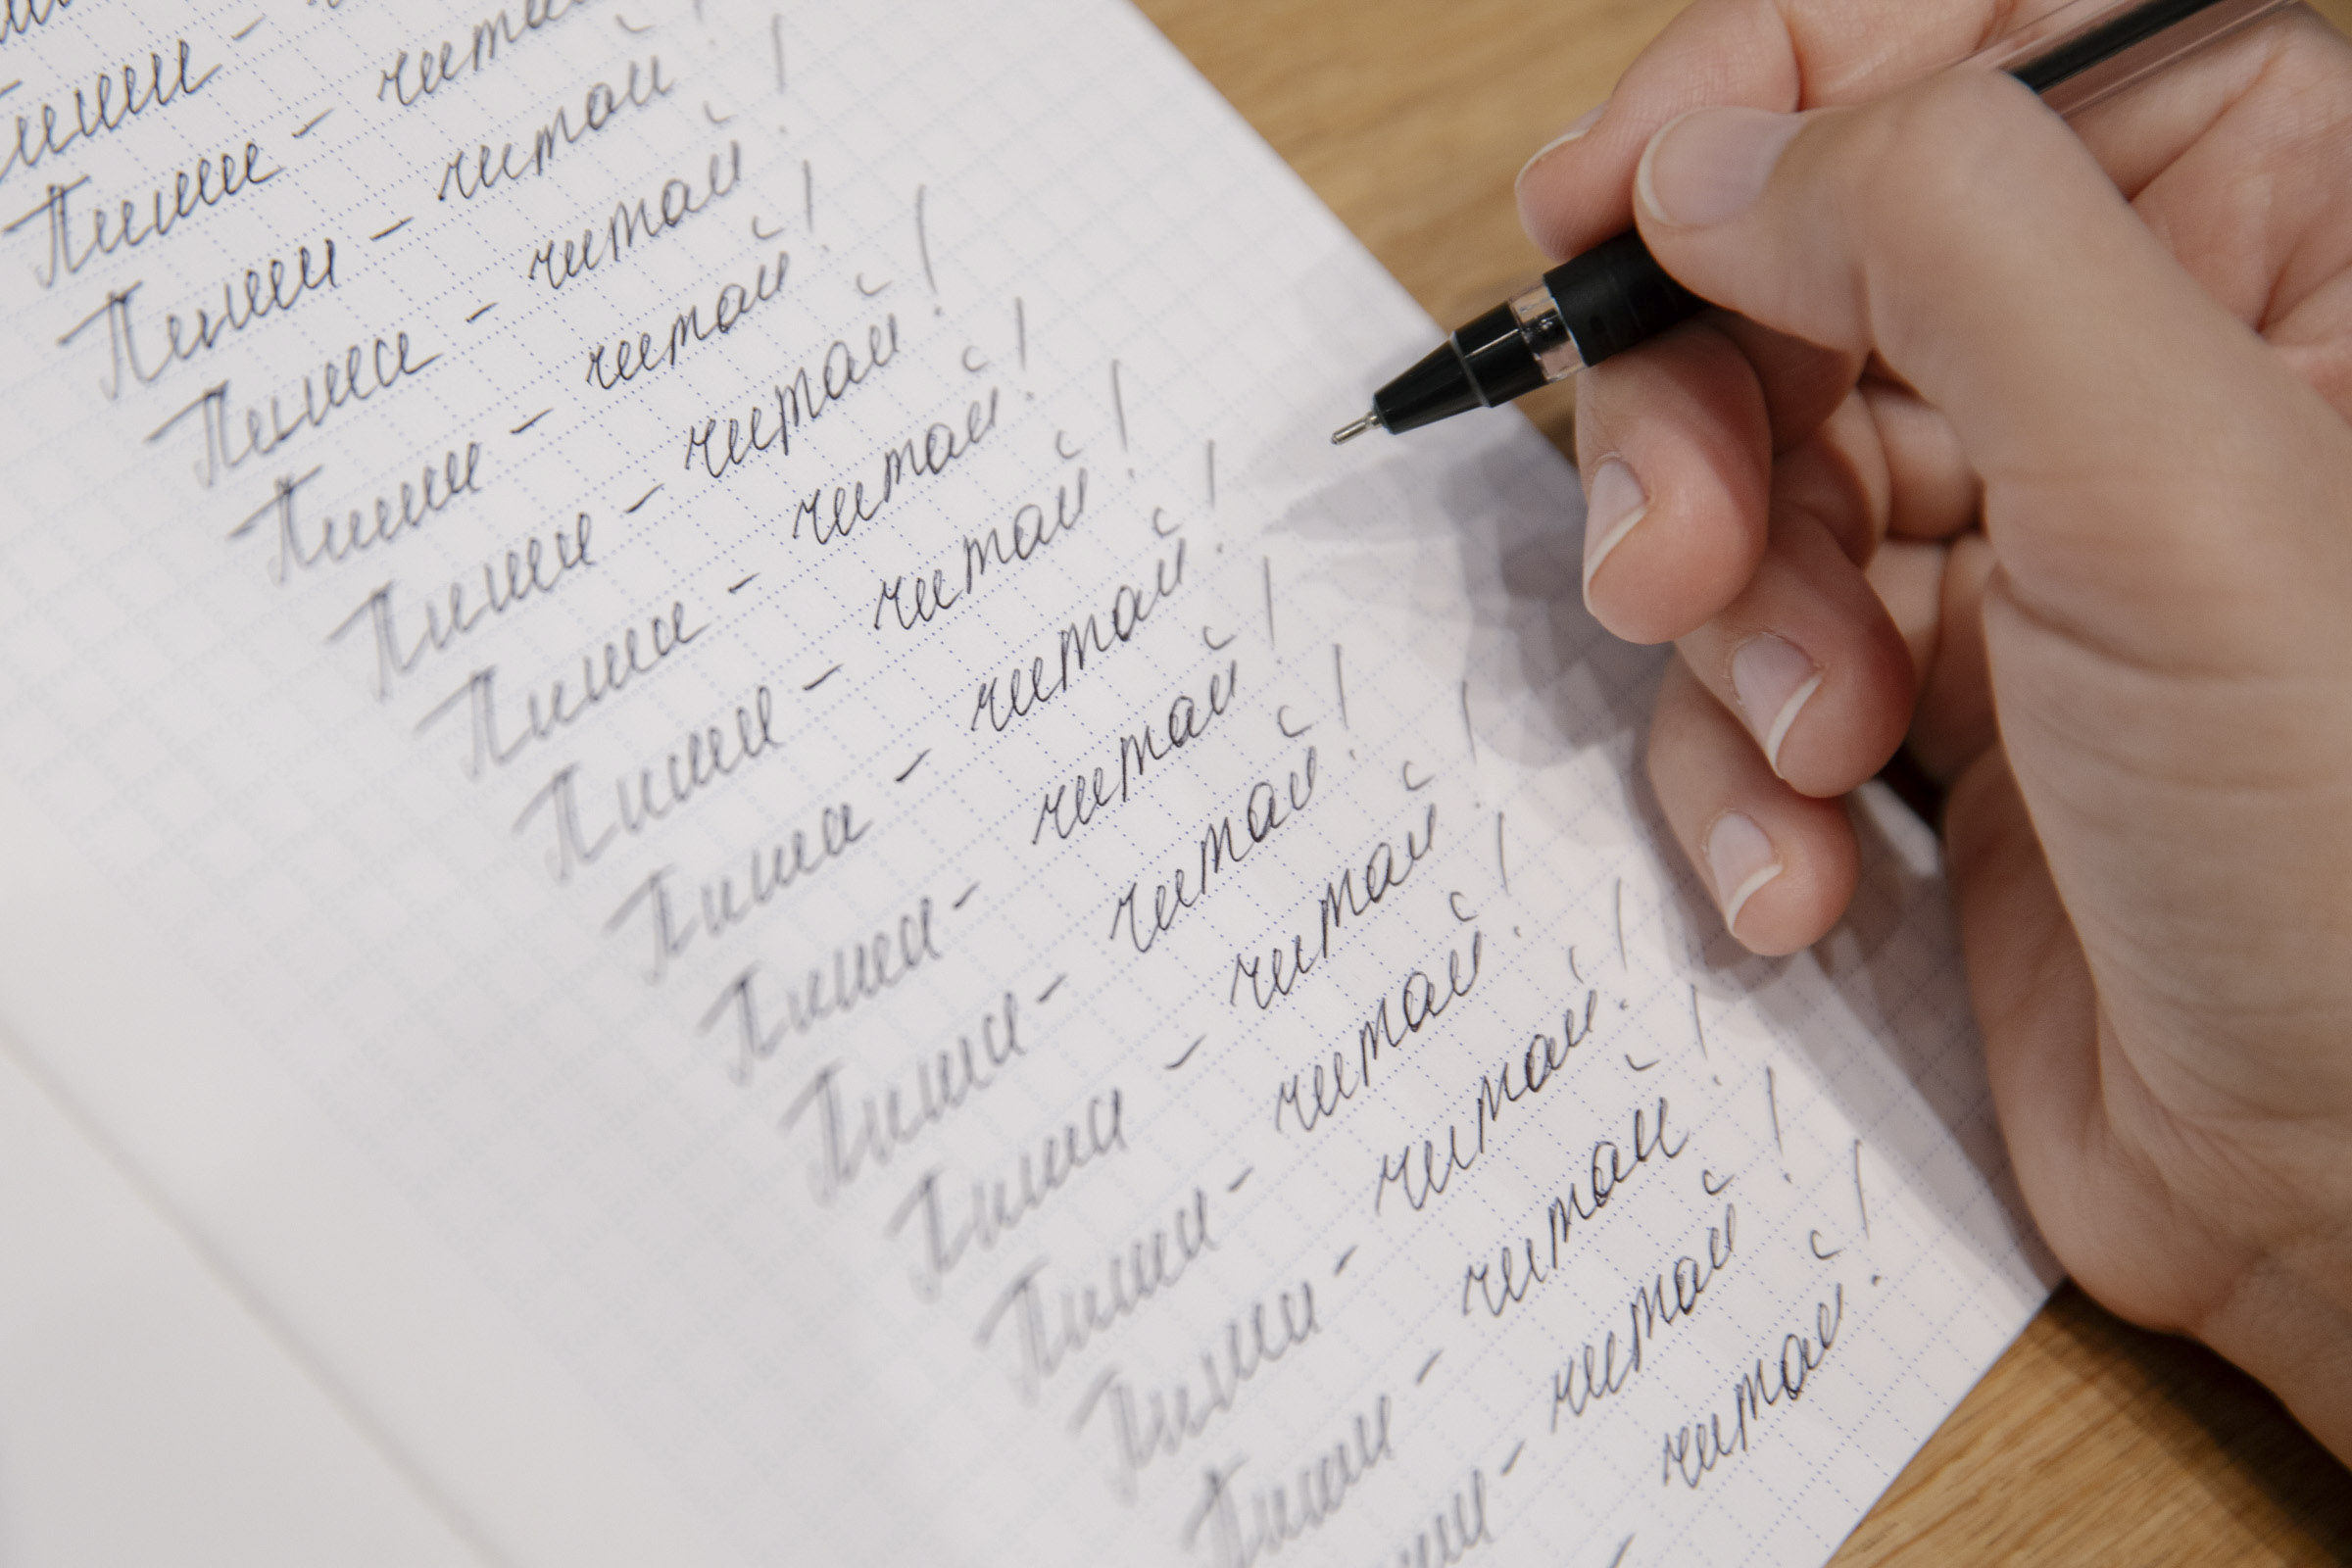 Пиши -
Пиши - читай!
Пиши - читай!
Пиши - читай!
Пиши - читай!
Пиши - читай!
Пиши - читай!
Пиши - читай!
Пиши - читай!
Пиши - читай!
Пиши - читай!
Пиши - читай!
Пиши - читай!
Пиши - читай!
Пиши - читай!
- читай!
- читай!